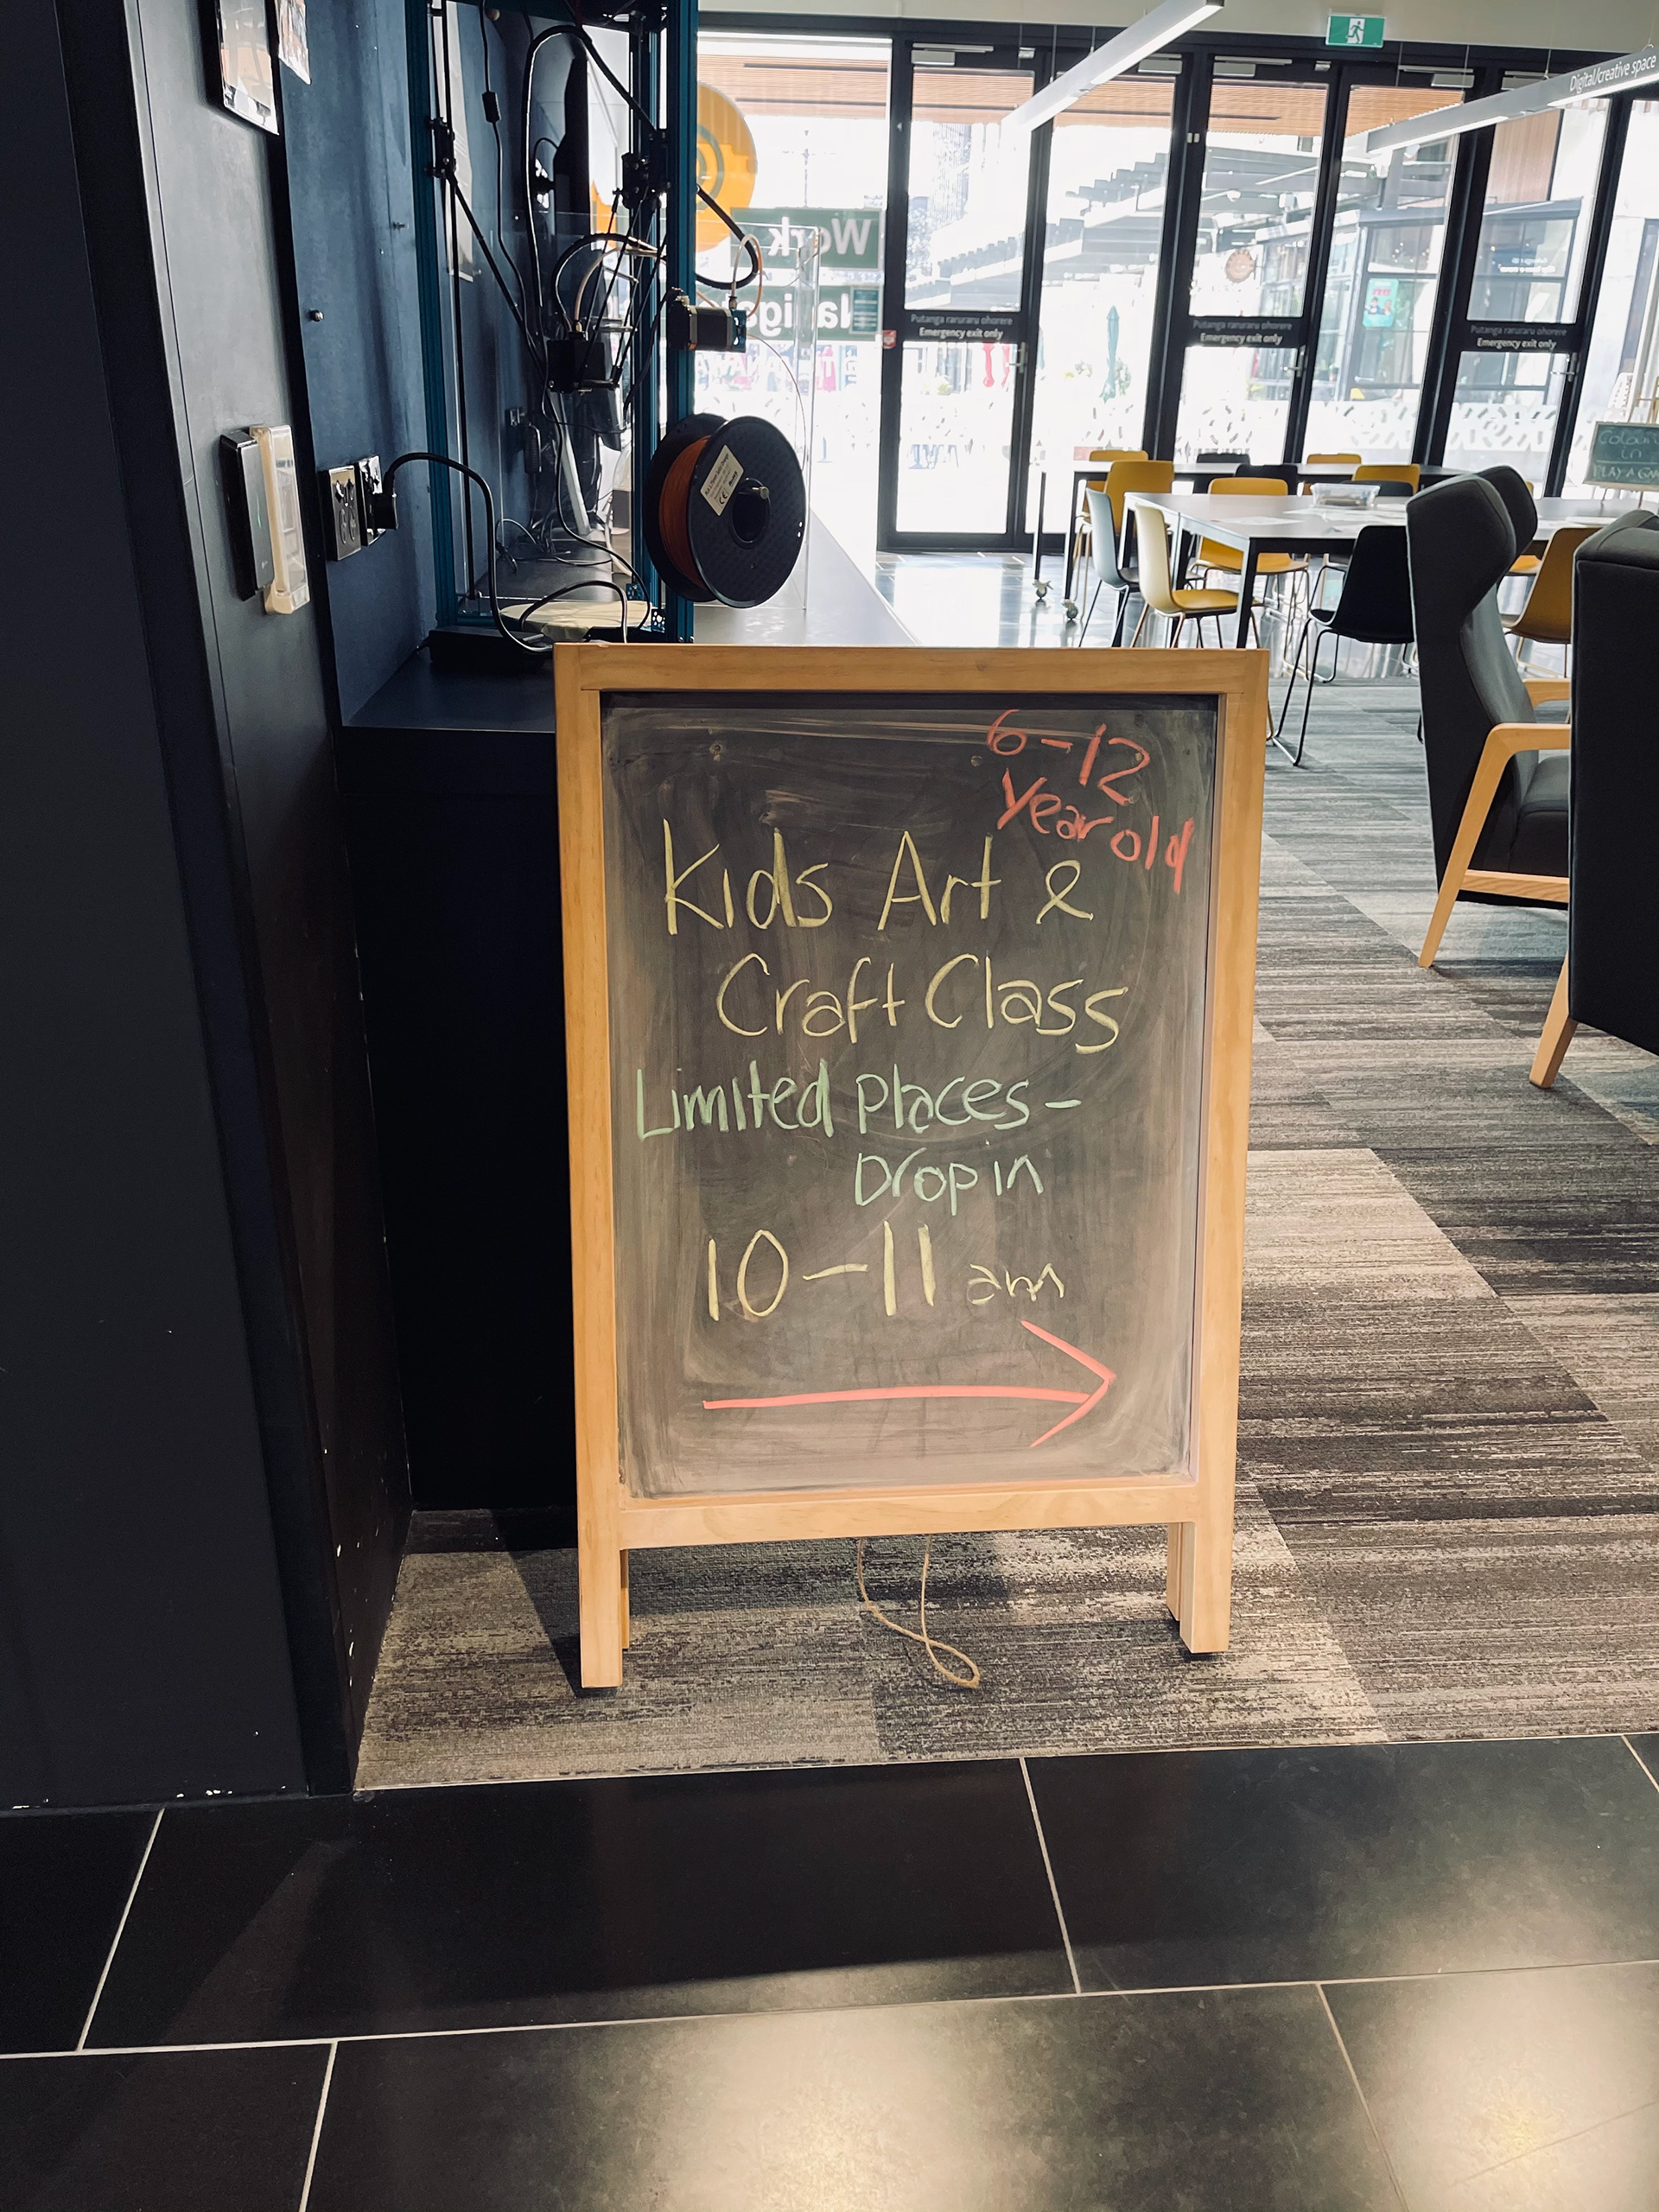 Digital/creative space
Work
Navigat
Putanga raruraru ohorere
Emergency exit only
Putanga raruraru ohorere
Emergency exit only
Putanga raruraru ohorere
Emergency exit only
in
PLAY A
6-12
Year old
Kids Art &
Craft Class
Limited places -
Drop in
10-11 am